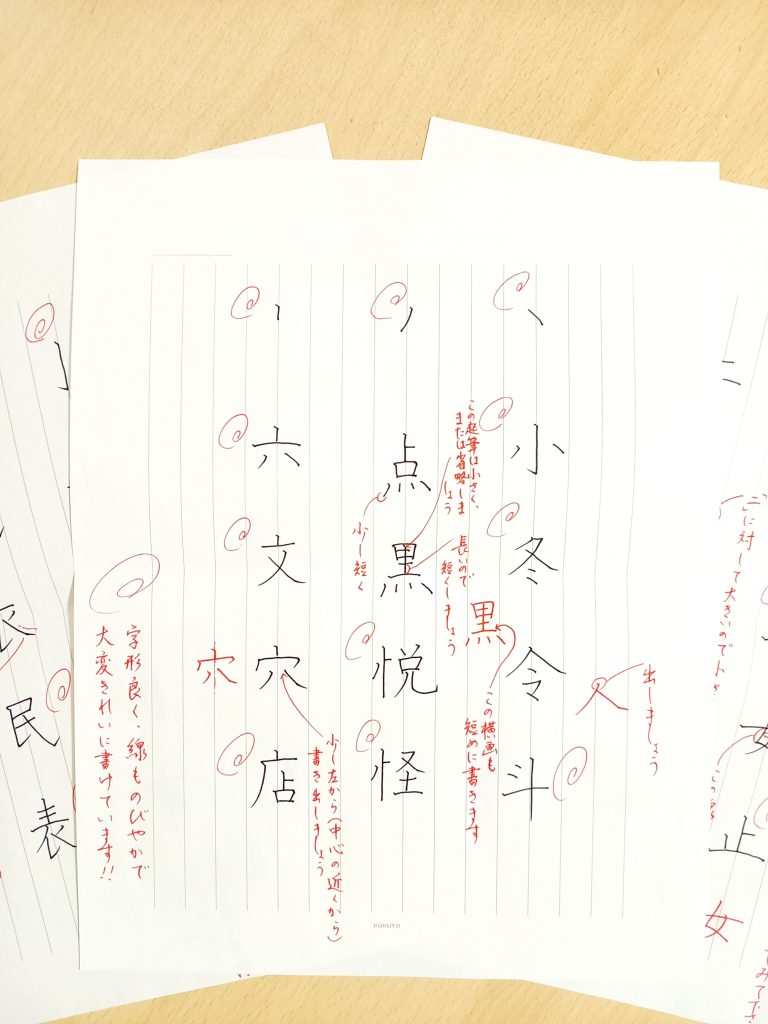 小
冬
令
斗
出しましょう
人
この起筆は小さく、
または省略しま
しょう
長いので
短くしましょう
黒
この横画も
短めに書きます
点
黒
悦
怪
少し短く
六
文
穴
店
穴
少し左から(中心の近くから)
書き出しましょう
字形良く、線ものびやかで
大変きれいに書けています!!
KOKUYO
民
表
に対して大きいので
止
女